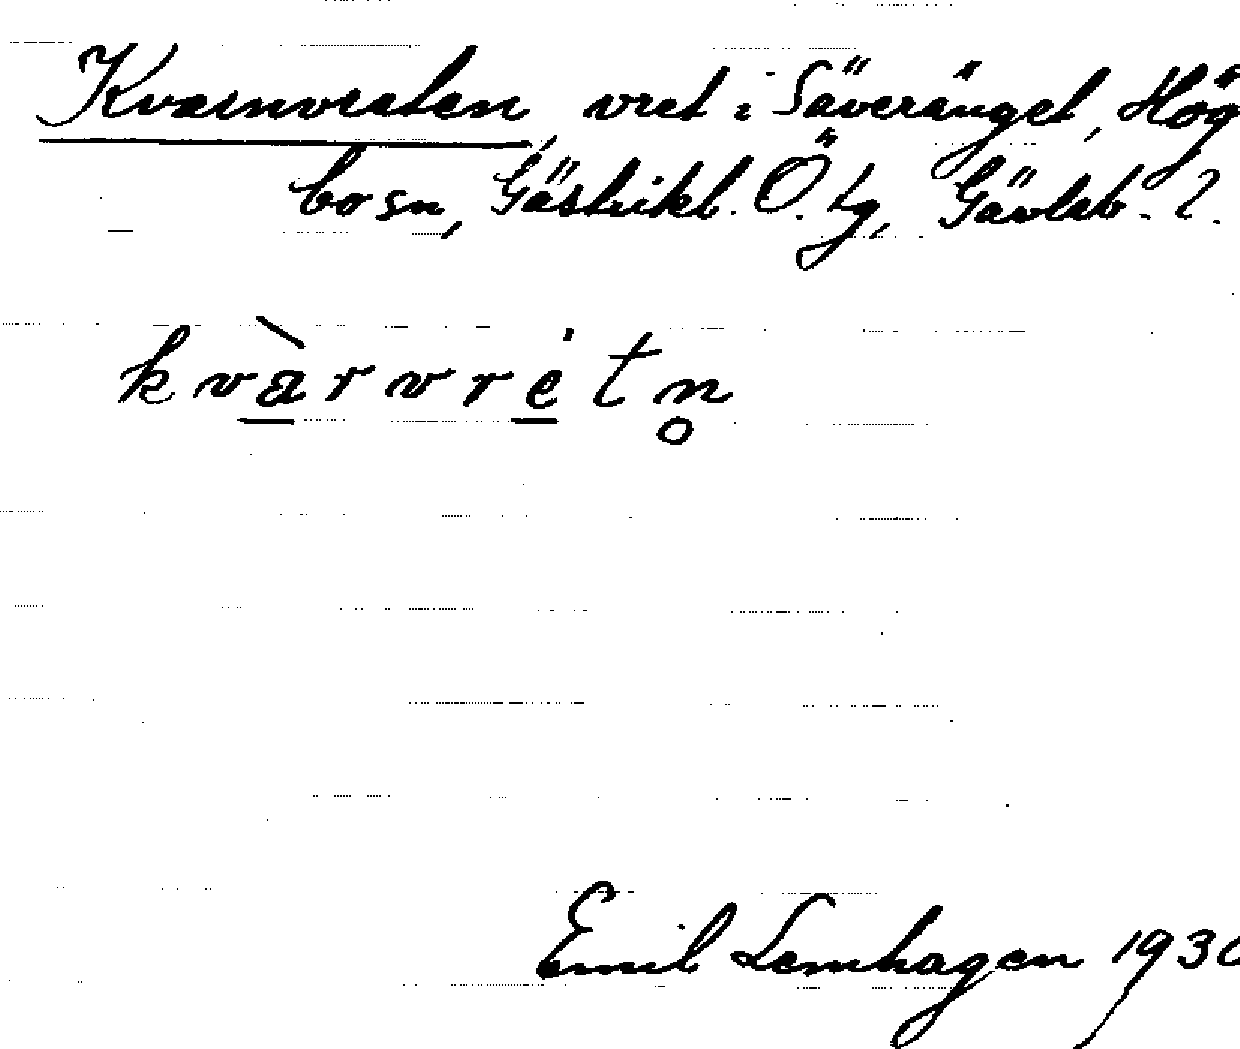 Kvarnvreten, vret i Säveränget, Hög
bo sn, Gästrikl. Ö. tg, Gävleb. l.
kvàrvrétn̥
Emil Lemhagen 1930